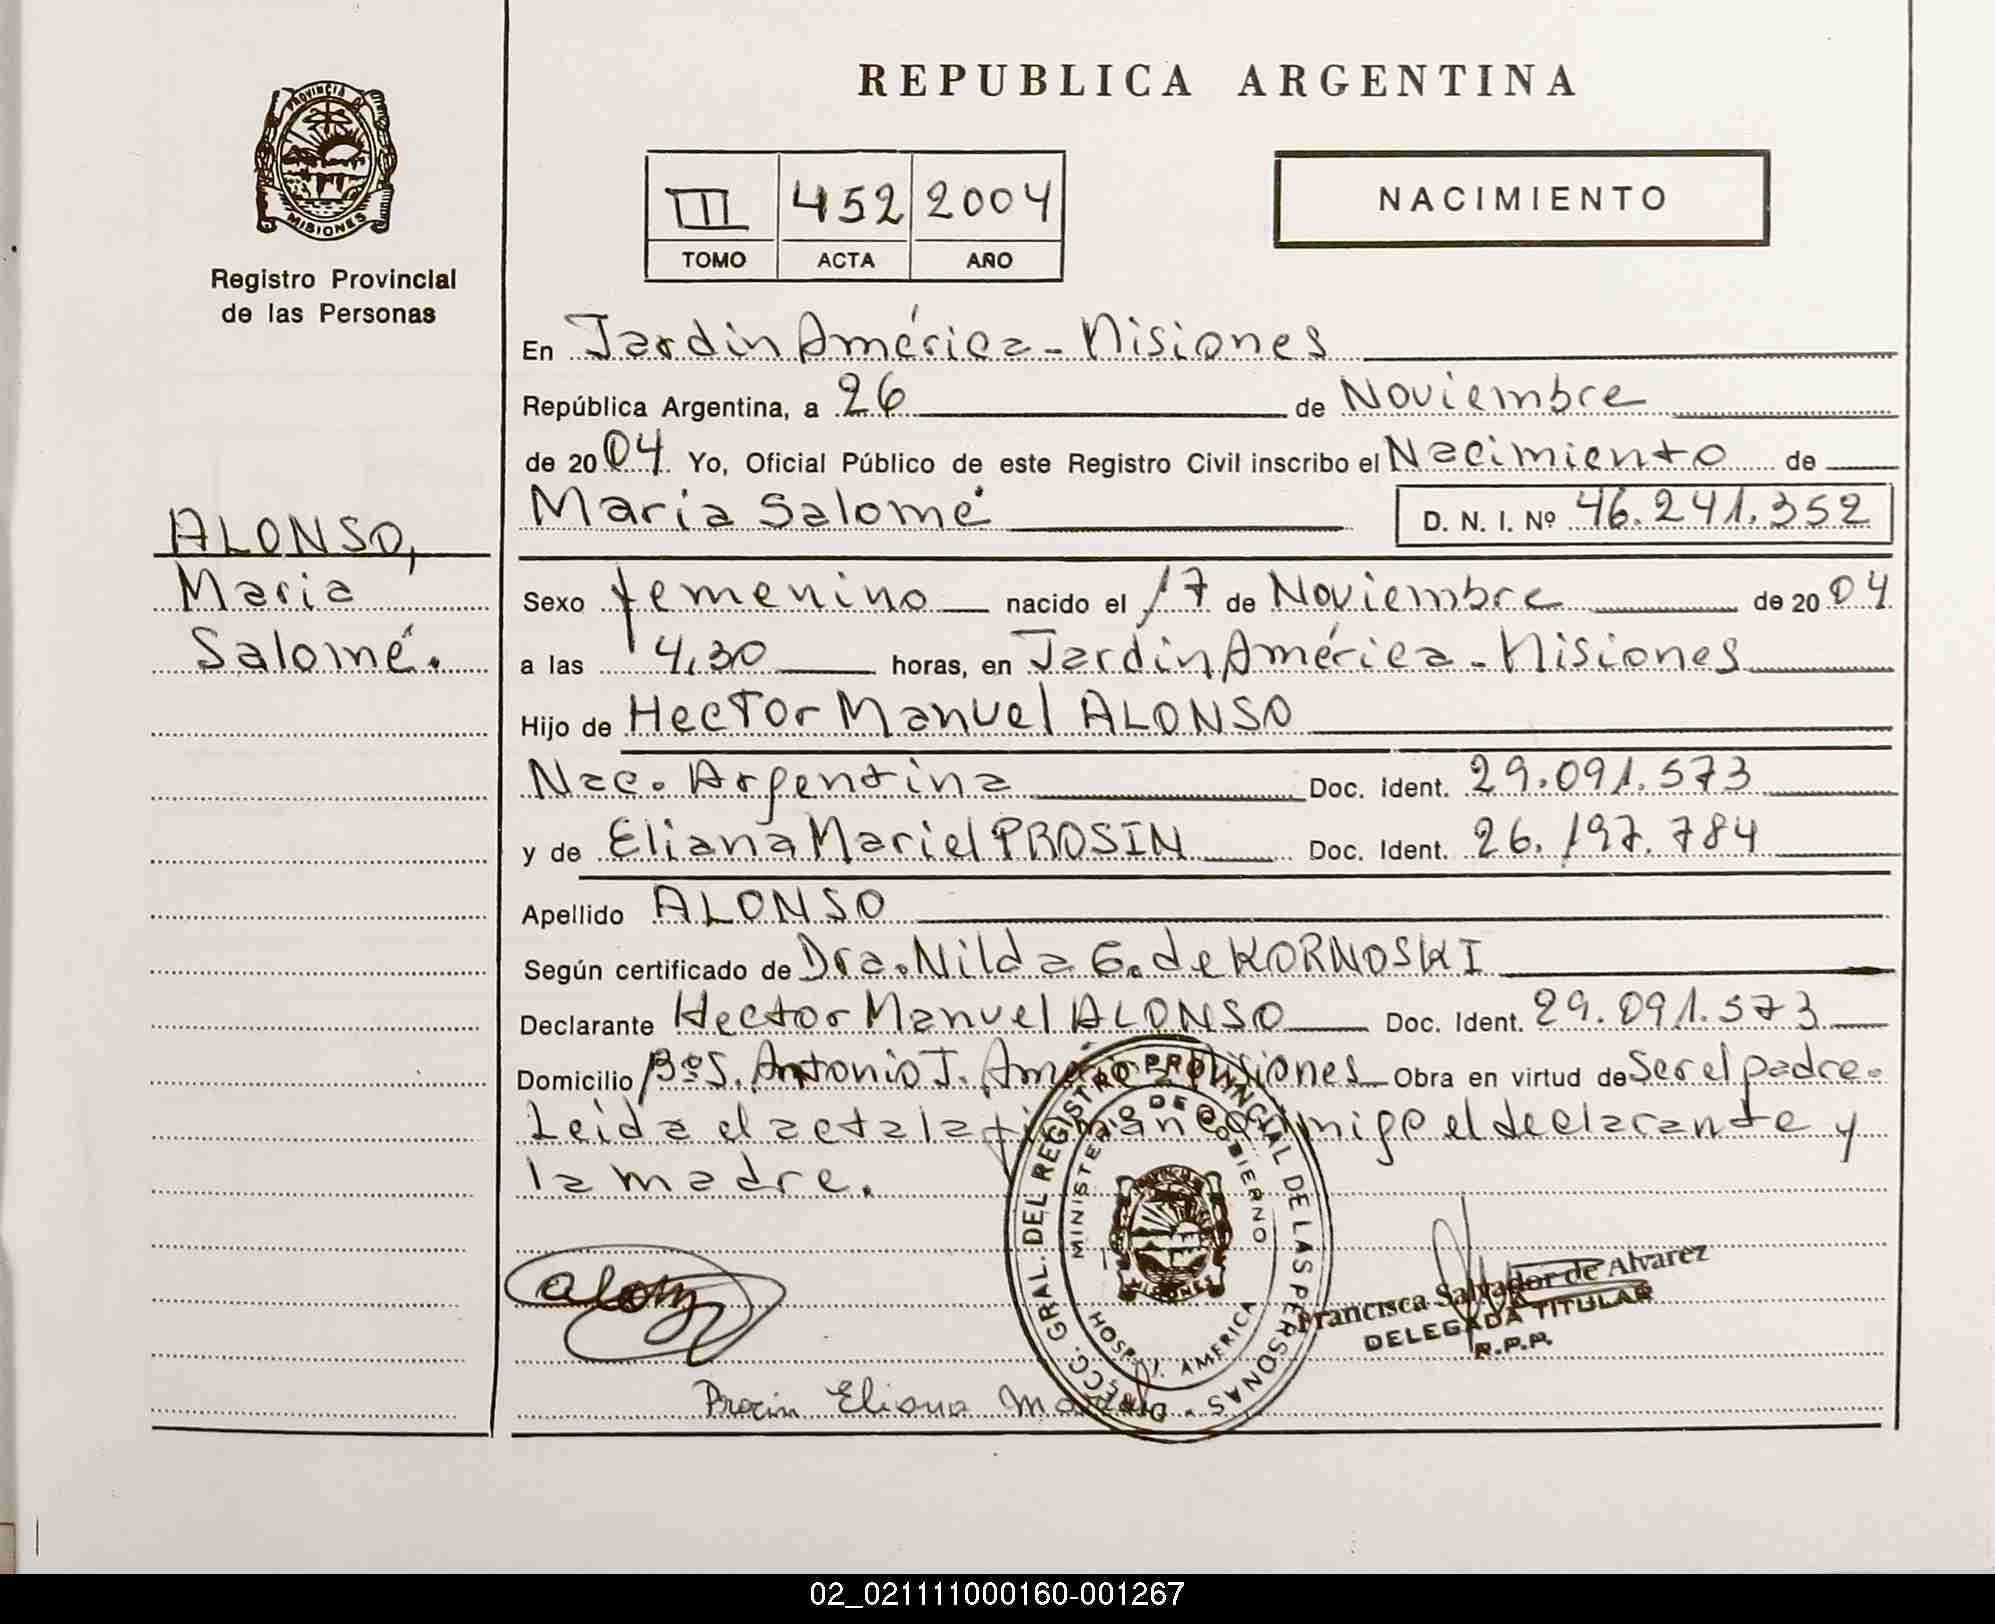 PROVINCIA DE
MISIONES
Registro Provincial
de las Personas
ALONSO,
Maria
Salomé.
REPUBLICA ARGENTINA
III 452 2004
TOMO ACTA AÑO
NACIMIENTO
En Jardin América - Misiones
República Argentina, a 26 de Noviembre
de 2004 Yo, Oficial Público de este Registro Civil inscribo el Nacimiento de
Maria Salomé D. N. I. Nº 46.241.352
Sexo femenino nacido el 17 de Noviembre de 2004
a las 4,30 horas, en Jardin América - Misiones
Hijo de Hector Manuel ALONSO
Nac. Argentina Doc. Ident. 29.091.573
y de Eliana Mariel PROSIN Doc. Ident. 26.197.784
Apellido ALONSO
Según certificado de Dra. Nilda G. de KORNOSKI
Declarante Hector Manuel ALONSO Doc. Ident. 29.091.573
Domicilio Bº S. Antonio J. América Misiones Obra en virtud de Ser el padre.
Leída el acta la firman conmigo el declarante y
la madre.
DIRECC. GRAL. DEL REGISTRO PROVINCIAL DE LAS PERSONAS
MINISTERIO DE GOBIERNO
MISIONES
HOSP. J. AMERICA
Francisca Salvador de Alvarez
DELEGADA TITULAR
R.P.P.
Eliana
02_021111000160-001267